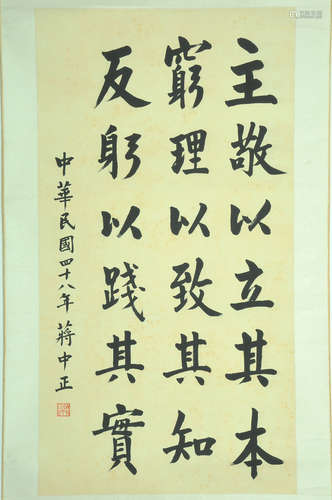 主敬以立其本
窮理以致其知
反躬以踐其實
中華民國四十八年 蔣中正